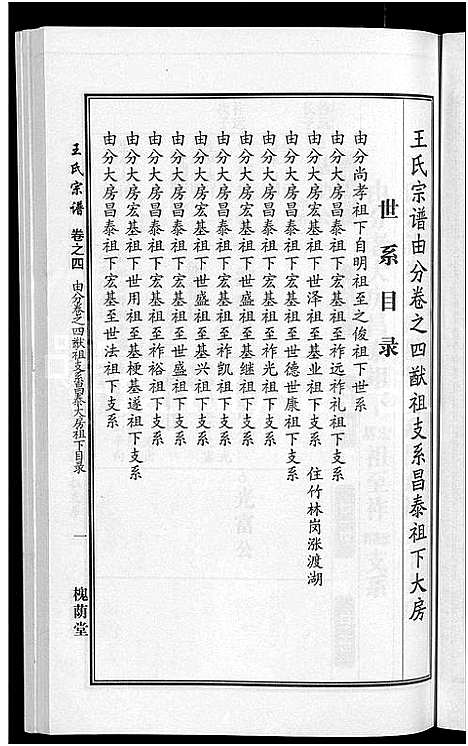 王氏宗谱由分卷之四猷祖支系昌泰祖下大房
世系目录
由分尚孝祖下自明祖至之俊祖下世系
由分大房昌泰祖下宏基至祚远祚礼祖下支系
由分大房宏基祖下世泽祖至基业祖下支系　住竹林岗涨渡湖
由分大房昌泰祖下宏基祖至世德世康祖下支系
由分大房昌泰祖下宏基至祚光祖下支系
由分大房宏基祖下世盛祖至基继祖下支系
由分大房昌泰祖下宏基祖至祚凯祖下支系
由分大房宏基祖下世盛祖至基兴祖下支系
由分大房昌泰祖下宏基祖至世盛祖下支系
由分大房昌泰祖下宏基至祚裕祖下支系
由分大房宏基祖下世用祖至基梗基遂祖下支系
由分大房昌泰祖下宏基至世法祖下支系
王氏宗谱　卷之四　由分卷之四猷祖支系昌泰大房祖下目录　一　槐荫堂